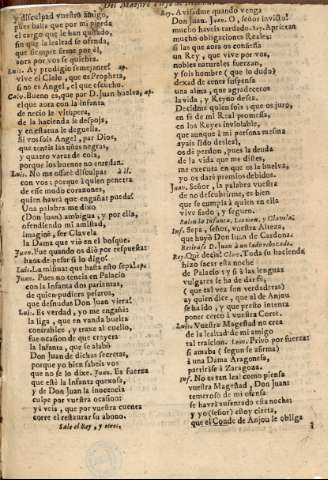 Del Maestro
y disculpad vuestro amigo,
pues basta que por mi pierda
el cargo que le han quitado,
sin que la lealtad se ofenda,
que siempre firme por el,
aora por vos se quiebra.
Luis. Ay prodigio semejante! ap.
vive el Cielo, que es Propheta,
si no es Angel, el que escucho.
Bueno es, que por D. Juan buelva, ap.
el que aora con la Infanta
de necio le vitupera,
de la hacienda le despoja,
y en estatua le deguella.
Si vos sois Angel, par Dios,
que teneis las uñas negras,
y quatro varas de cola,
porque los buenos no entredan.
Luis. No me osaré disculpar à èl.
con vos: porque à quien penetra
de esse modo corazones,
quien havrá que engañar pueda?
Una palabra me dixo
(Don Juan) ambigua, y por ella,
ofendiendo mi amistad,
imaginè, ser Clavela
la Dama que viò en el bosque.
Juan. Fue quando os diò por respuesta:
haos de pesar si lo digo?
Luis. La misma: que hasta esto sepa! ap.
Juan. Pues no tenela en Palacio
con la Infanta dos parientas,
de quien pudiera pesaros,
que desnudas Don Juan viera?
Luis. Es verdad, y yo me engañè:
la liga, que en vanda buelta
contrahice, y traxe al cuello,
fue ocasion de que creyera
la Infanta, que se alabò
Don Juan de dichas secretas,
porque yo bien sabeis vos
que no se lo dixe. Juan. Es fuerza
que està la Infanta quexosa,
y de Don Juan la inocencia
culpe por vuestra ocasion:
y à veis, que por vuestra cuenta
corre el restaurar su abono.
Sale el Rey, y
Rey. Avisadme quando venga
Don Juan. Juan. O, señor invicto!
mucho haveis tardado. Rey. Aprietan
mucho obligaciones Reales:
si las que aora os confiessa
un Rey, que vive por vos,
nobles naturales fuerzan,
y sois hombre (que lo dudo)
dexad de tener suspensa
una alma, que agradeceros
la vida, y Reyno dessea.
Decidme quien sois: que os juro,
en fe de mi Real promessa,
en los Reyes inviolable,
que aunque à mi persona mesma
ayais sido desleal,
os dè perdon, pues la deuda
de la vida que me disteis,
me executa en que os la buelva,
yo os darè premios debidos.
Juan. Señor, la palabra vuestra
de no descubrirme, es bien
que se cumpla à quien en ella
vive sado, y seguro.
Salen la Infanta, Leonora, y Clavela.
Inf. Sepa, señor, vuestra Alteza,
que huyò Don Juan de Cardona.
Retirase D. Juan à un lado rebozado.
Rey. Què decis? Clav. Toda su hacienda
hizo sacar esta noche
de Palacio; y si à las lenguas
vulgares se ha de dar fe,
(que tal vez son verdaderas)
ay quien dice, que al de Anjou
se ha ido, y que presto intenta
poner cerco à vuestra Corte.
Luis. Vuestra Magestad no crea
de la lealtad de mi amigo
tal traicion. Leon. Privo por fuerza:
si amaba (segun se afirma)
à una Dama Aragonesa,
partiràse à Zaragoza.
Inf. No es tan leal como piensa
vuestra Magestad, Don Juan:
temeroso de mi ofensa
se havrà ausentado esta noche;
y yo (señor) estoy cierta,
que el Conde de Anjou le obliga